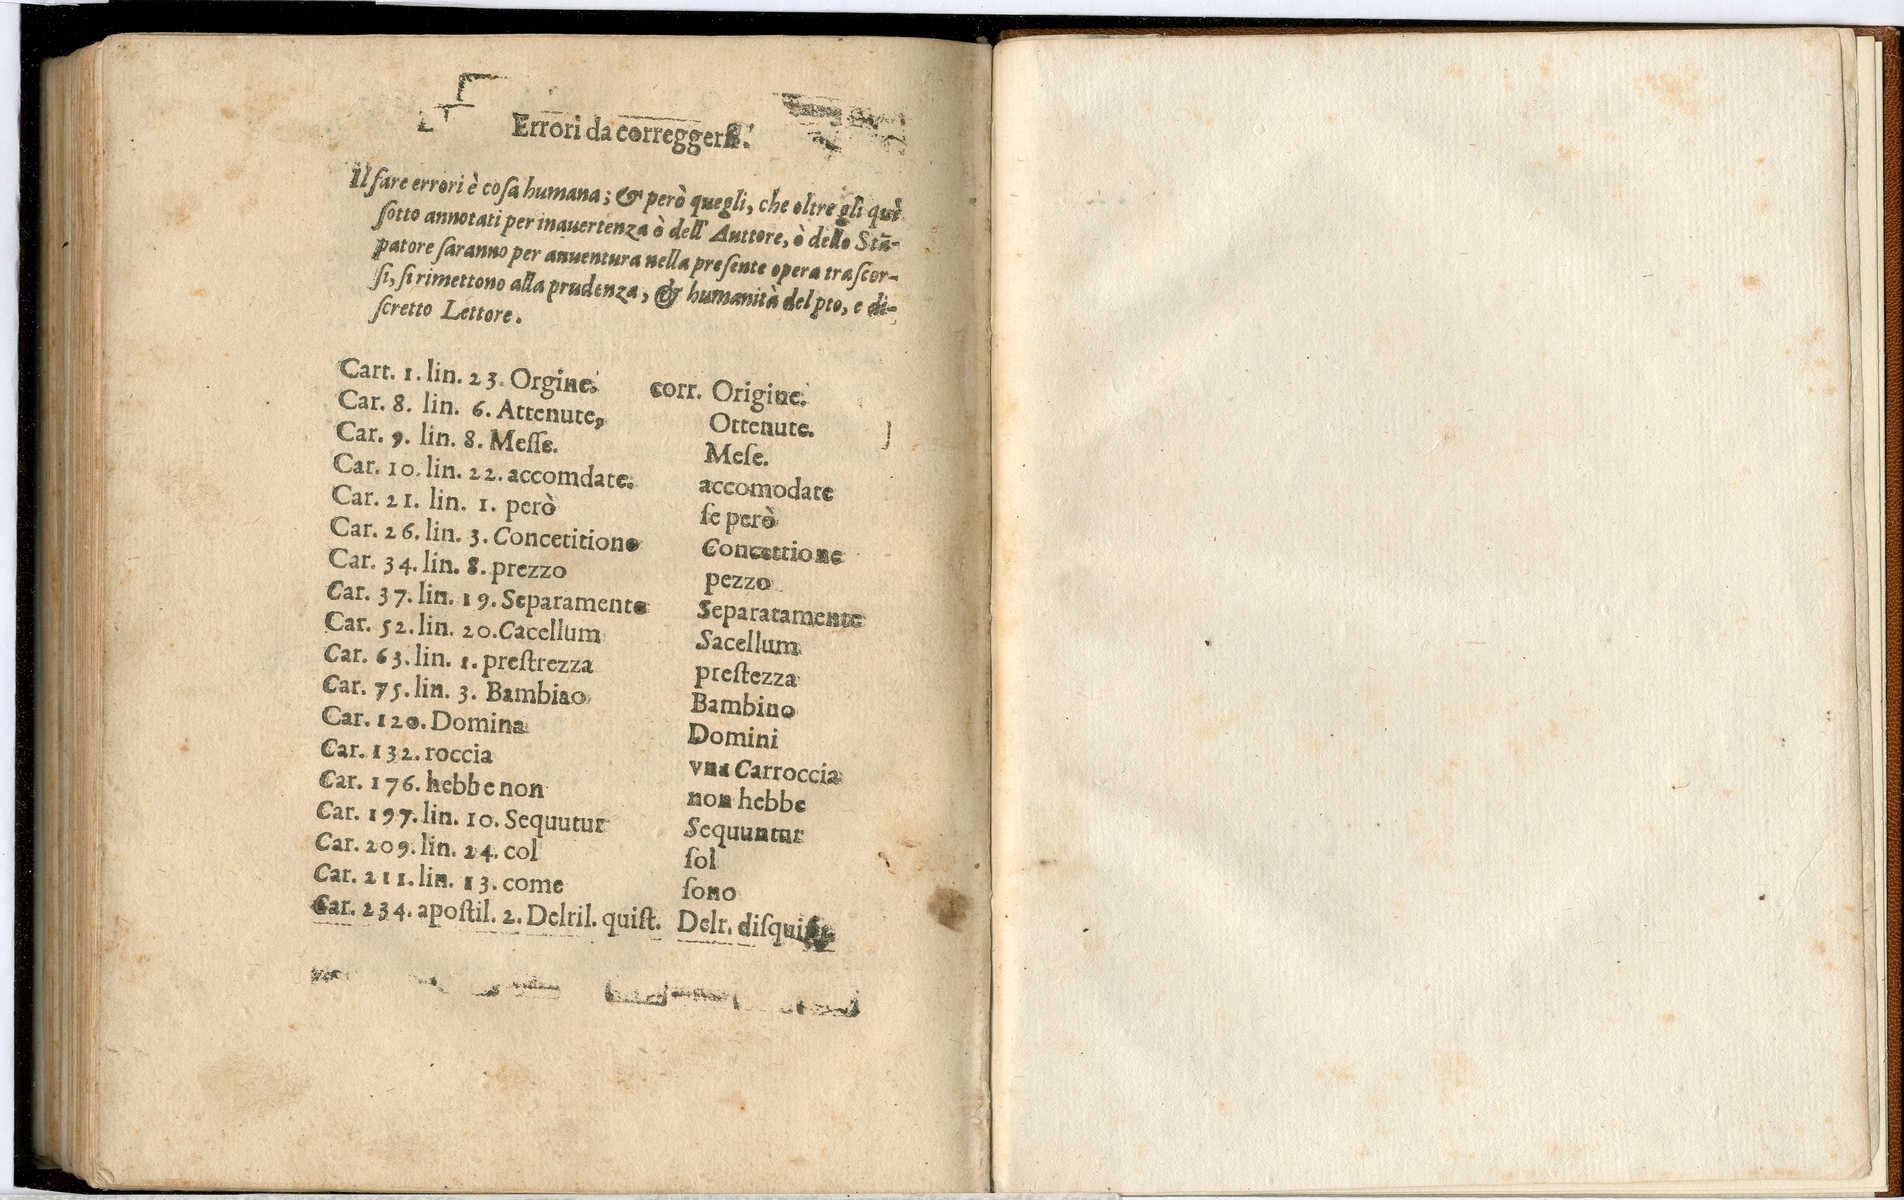 Errori da correggersi.
Il fare errori è cosa humana; & però quegli, che oltre gli què
sotto annotati per inauertenza ò dell' Auttore, ò dello Stā-
patore saranno per auuentura nella presente opera trascor-
si, si rimettono alla prudenza, & humanità del pto, e di-
scretto Lettore.
Cart. 1. lin. 23. Orgine. corr. Origine.
Car. 8. lin. 6. Attenute, Ottenute.
Car. 9. lin. 8. Messe. Mese.
Car. 10. lin. 22. accomdate. accomodate
Car. 21. lin. 1. però se però
Car. 26. lin. 3. Concetitione Concettione
Car. 34. lin. 8. prezzo pezzo
Car. 37. lin. 19. Separamente Separatamente
Car. 52. lin. 20. Cacellum Sacellum
Car. 63. lin. 1. prestrezza prestezza
Car. 75. lin. 3. Bambiao Bambino
Car. 120. Domina Domini
Car. 132. roccia vna Carroccia
Car. 176. hebbe non non hebbe
Car. 197. lin. 10. Sequutur Sequuntur
Car. 209. lin. 24. col sol
Car. 211. lin. 13. come sono
Car. 234. apostil. 2. Delril. quist. Delr.